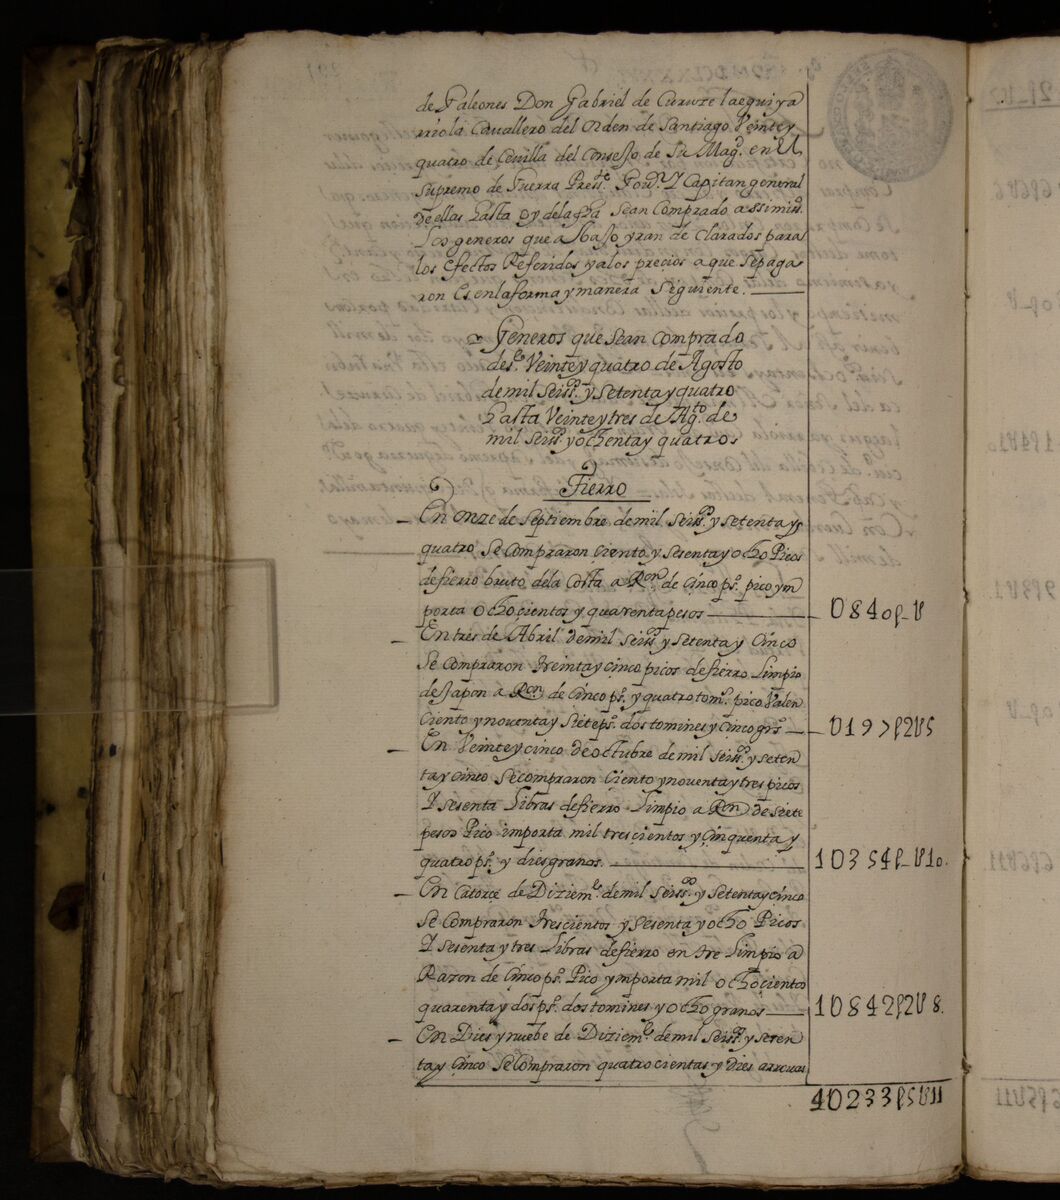 de Galeones Don Gabriel de Curuzelaegui ya
rriola Cavallero del orden de Santiago Veinte y
quatro de Cevilla del Consejo de Su Magd. en el
Supremo de Guerra Presste. Govr. Y Capitan general
de ellas hasta oy de la fha Sean Comprado assimismo
Los generos que a bajo yran de clarados para
los efectos Referidos y a los precios a que Se paga
ron es en la forma y manera Siguiente.
Generos que sean comprado
desde Veinte y quatro de Agosto
de mil Seissos. y Setenta y quatro
hasta Veinte y tres de Agto. de
mil Seissos. y ochenta y quatros
Fierro
En onze de Septiembre de mil Seissos. y Setenta y
quatro Se Compraron Ciento y Sesenta y ocho Picos
de fierro bruto de la Costa a Ron. de Cinco ps. pico ym
porta ochocientos y quarenta pesos
U840p-U
En tres de Abril de mil Seissos. y Setenta y Cinco
Se Compraron treinta y cinco picos de fierro Limpio
de Japon a Ron. de Cinco ps. y quatro toms. pico Valen
Ciento y noventa y Siete ps. dos tomines y Cinco grs.
U197p2U5
En Veinte y cinco de octubre de mil Seissos. y Seten
ta y cinco Se compraron Ciento y noventa y tres picos
Y Sesenta Libras de fierro Limpio a Ron. de Siete
pesos Pico importa mil trescientos y Cinquenta y
quatro ps. y dies granos
1U354p-U10.
En Catorce de Diziembe. de mil Seissos. y Setenta y cinco
Se Compraron trescientos y Sesenta y ocho Picos
Y Sesenta y tres Libras de fierro en tre Limpio a
Razon de Cinco ps. Pico ymporta mil ochocientos
quarenta y dos ps. dos tomines y ocho granos
1U842p2U8.
En Dies y nuebe de Diziembe. de mil Seissos. y Seten
ta y Cinco Se Compraron quatrocientas y dies arrovas
4U233p5U11